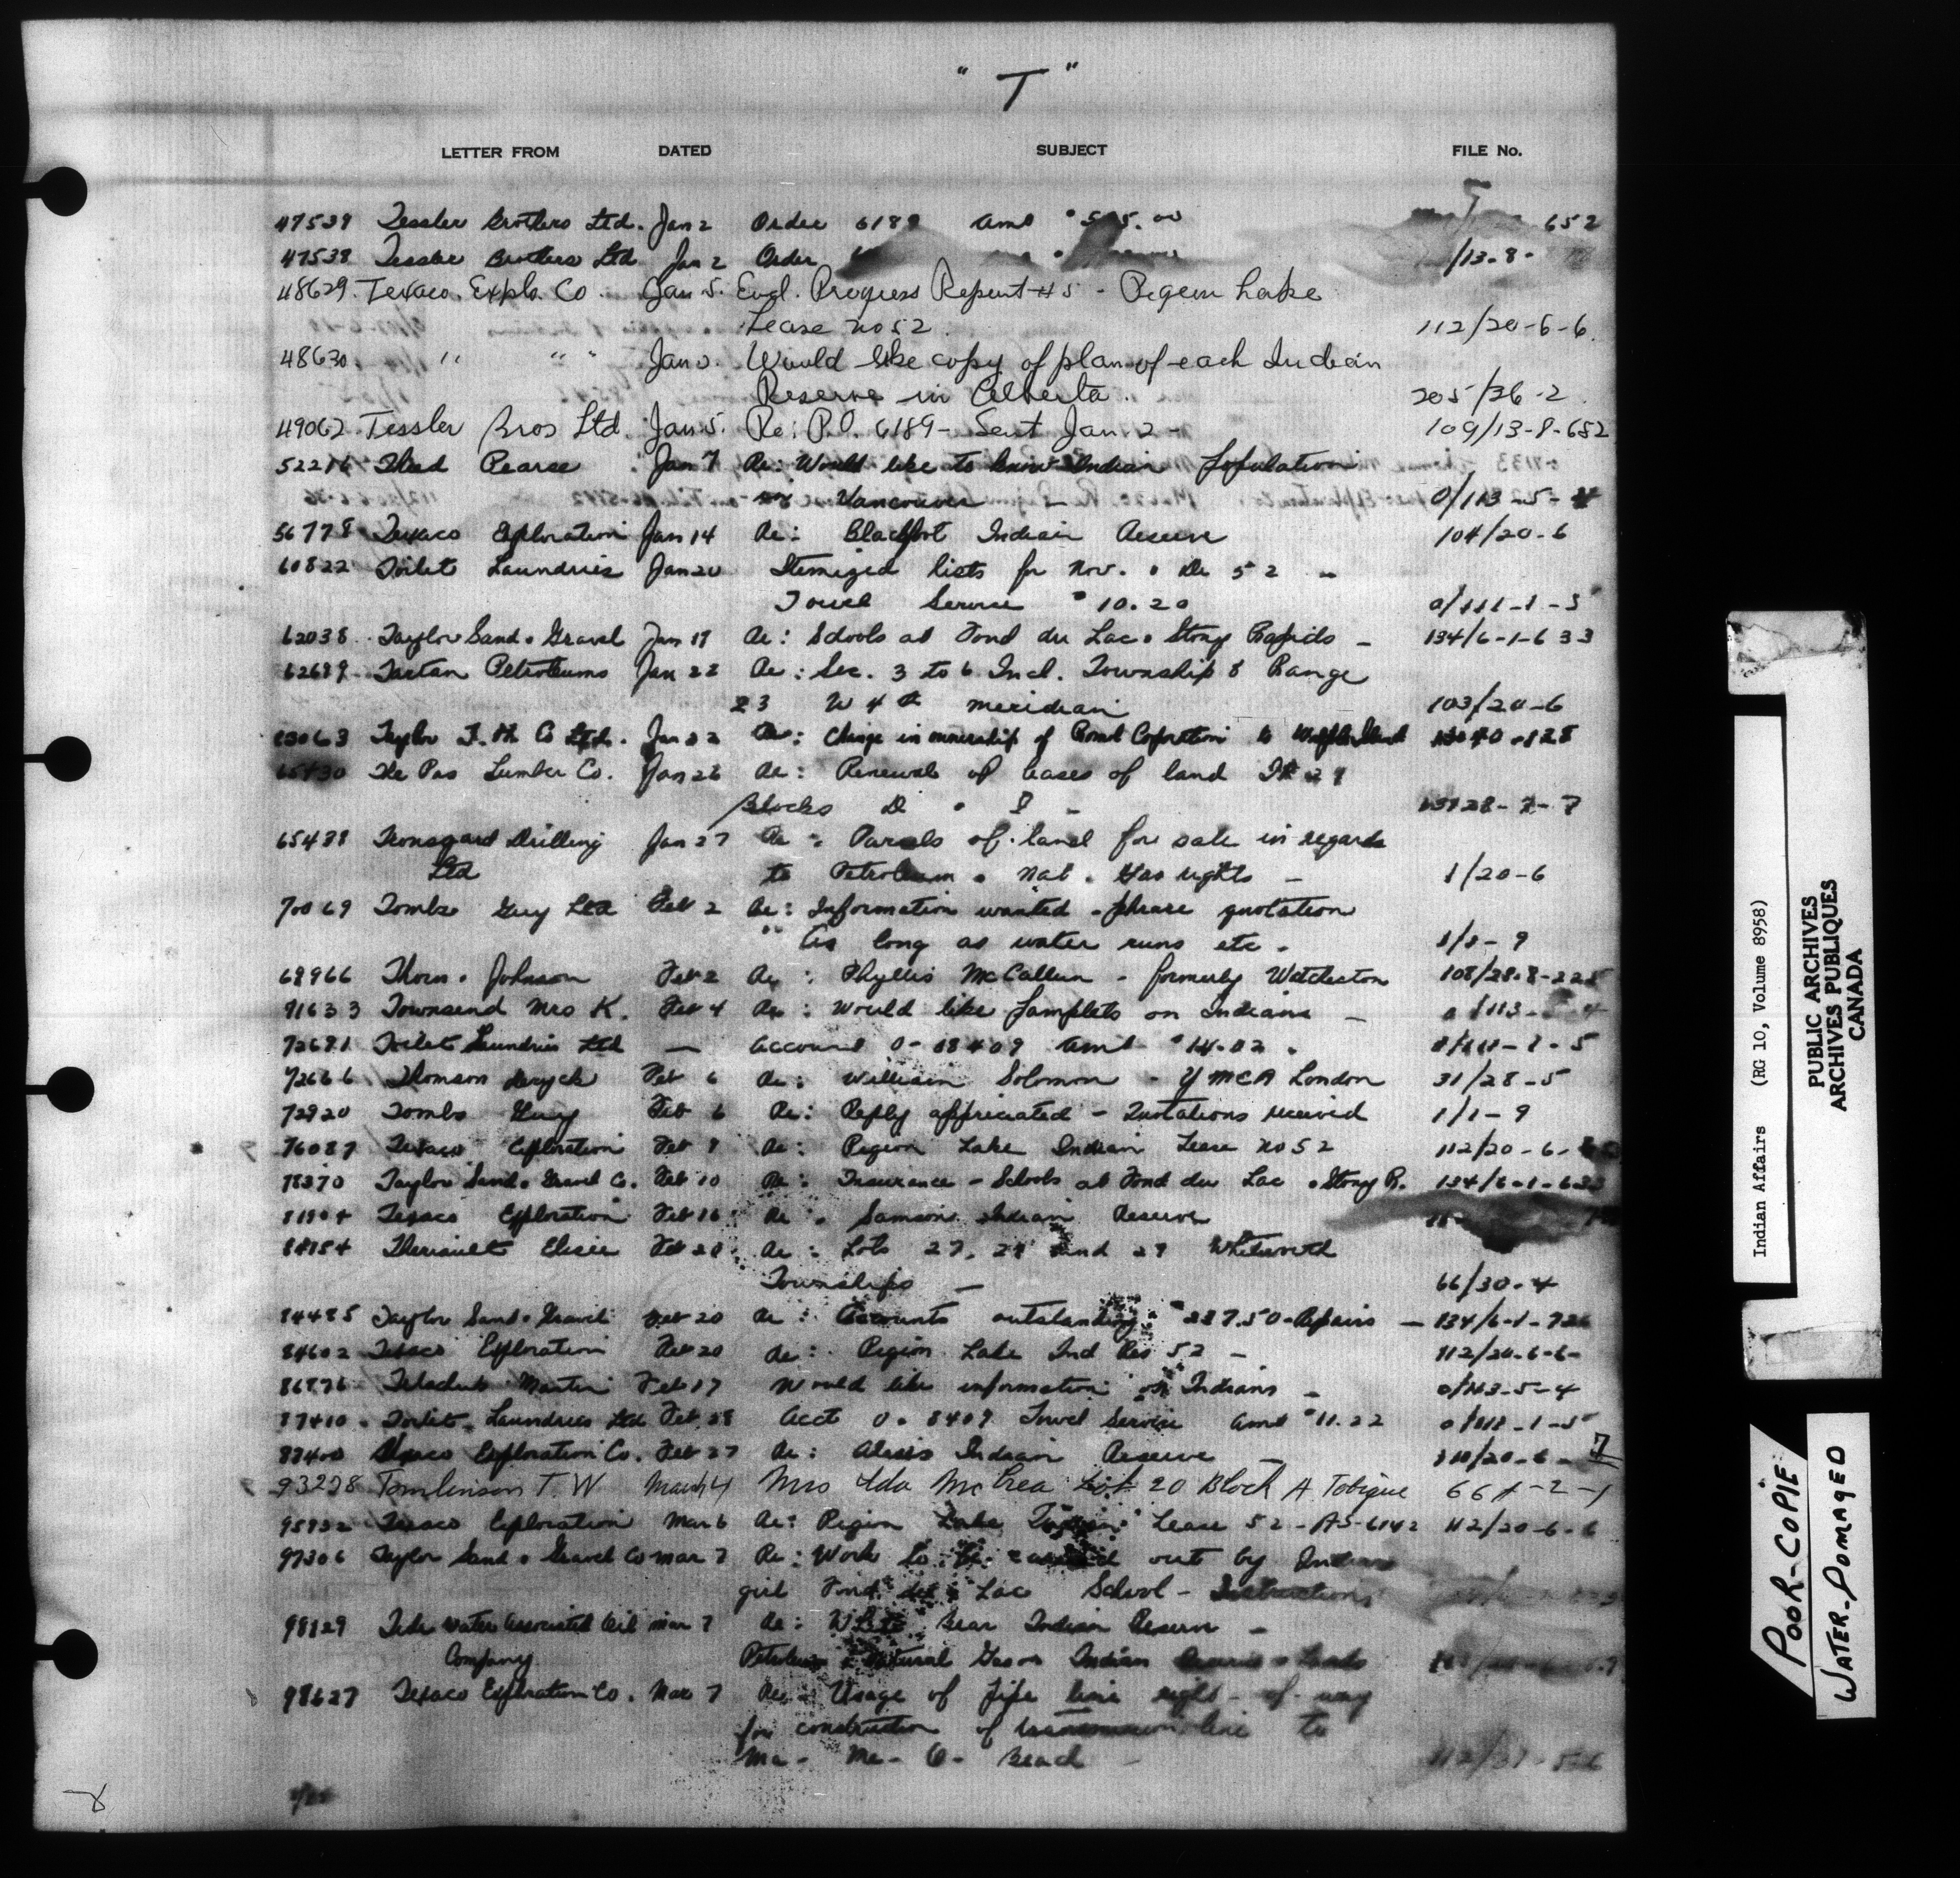 " T "
LETTER FROM DATED SUBJECT FILE No.
47539 Tessler Brothers Ltd. Jan 2 Order 6189 Amt 652
47538 Tessler Brothers Ltd Jan 2 Order /13-8-
48629. Texaco. Explo. Co. Jan 5. Encl. Progress Report #5 - Pigeon Lake
Lease no 52. 112/20-6-6.
48630. " " " Jan Would like copy of plan of each Indian
Reserve in Alberta. 205/36-2.
49062 Tessler Bros Ltd. Jan 5. Re: P.O. 6189 - Sent Jan. 2 - 109/13-8-652
52216 Pearse Jan 7 Re: Would like to know Indian Population
Vancouver - 0/113-5-4
56778 Texaco Exploration Jan 14 Re: Blackfoot Indian Reserve 104/20-6
60822 Toilet Laundries Jan 20 Itemized lists for Nov. & De 52 -
Towel Service $10.20 0/111-1-5
62038 Taylor Sand & Gravel Jan 19 Re: Schools at Fond du Lac & Stony Rapids - 134/6-1-633
62689 Tartan Petroleums Jan 22 Re: Sec. 3 to 6 Incl. Township 8 Range
23 W 4th meridian 103/20-6
Taylor Co Ltd. Jan 22 Re: Change in ownership of
The Pas Lumber Co. Jan 26 Re: Renewal of leases of land
Blocks D &
65488 Drilling Jan 27 Re: Parcels of land for sale in regards
Ltd to Petroleum & Nat. Gas rights - 1/20-6
70069 Tombs Guy Ltd Feb 2 Re: Information wanted - phrase quotation
"As long as water runs etc. 1/1-9
68966 Thom & Johnson Feb 2 Re: Phyllis McCallum - formerly 108/28-8-225
71633 Townsend Mrs K. Feb 4 Re: Would like Pamplets on Indians - 0/113-5-4
72681 Toilet Laundries Ltd - Account 0-08409 Amt $14.02. 0/111-1-5
72666 Thomson Feb 6 Re: William Solomon - YMCA London 31/28-5
72920 Tombs Guy Feb 6 Re: Reply appriciated - Quotations received 1/1-9
76087 Texaco Exploration Feb 9 Re: Pigeon Lake Indian Lease no 52 112/20-6-
78370 Taylor Sand & Gravel Co. Feb 10 Re: Insurance - Schools at Fond du Lac & Stony R. 134/6-1-633
81904 Texaco Exploration Feb 16 Re: Samson Indian Reserve
84154 Theriault Elisee Feb 20 Re: Lots 27, 28 and 29 Whitworth
Townships - 66/30-4
84485 Taylor Sand & Gravel Feb 20 Re: Accounts outstanding $237.50 - Repairs - 134/6-1-726
84602 Texaco Exploration Feb 20 Re: Pigeon Lake Ind Res 52 - 112/20-6-6-
86876 Martin Feb 17 Would like information on Indians - 0/113-5-4
87410. Toilet Laundries Ltd Feb 28 Acct 0-8409 Towel Service Amt $11.22 0/111-1-5
87400 Texaco Exploration Co. Feb 27 Re: Alexis Indian Reserve - 110/20-6-7
93228 Tomlinson T. W March 4 Mrs Ida McCrea Lot 20 Block A Tobique
95932 Texaco Exploration Mar 6 Re: Pigeon Lake Indian Lease 52 - AS-6142 112/20-6-6
97306 Taylor Sand & Gravel Co Mar 7 Re: Work to be carried out by Indian
girl Fond du Lac School - Instructions
98129 Tide Water Associated Oil Mar 7 Re: White Bear Indian Reserve -
Company Petroleum & Natural Gas on Indian Lands
98627 Texaco Exploration Co. Mar 7 Re: Usage of pipe line right-of-way
for construction of transmission line to
Ma-Me-O- Beach - 112/31-5-6
Indian Affairs (RG 10, Volume 8958)
PUBLIC ARCHIVES
ARCHIVES PUBLIQUES
CANADA
POOR-COPIE
WATER-DOMAGED